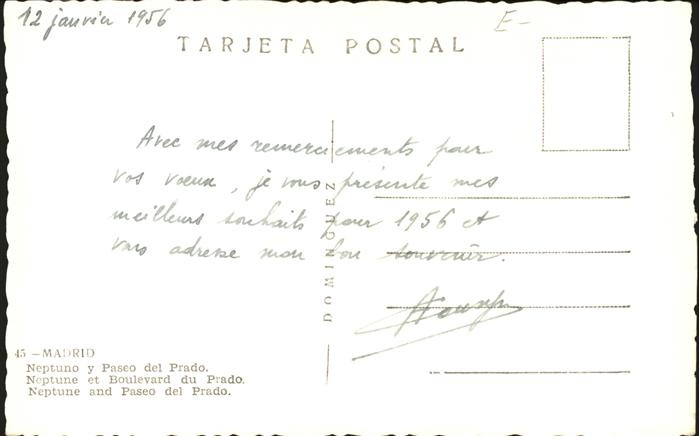 12 janvier 1956
E-
TARJETA POSTAL
Avec mes remerciements pour
vos vœux, je vous présente mes
meilleurs souhaits pour 1956 et
vous adresse mon bon souvenir.
DOMINGUEZ
45 — MADRID
Neptuno y Paseo del Prado.
Neptune et Boulevard du Prado.
Neptune and Paseo del Prado.